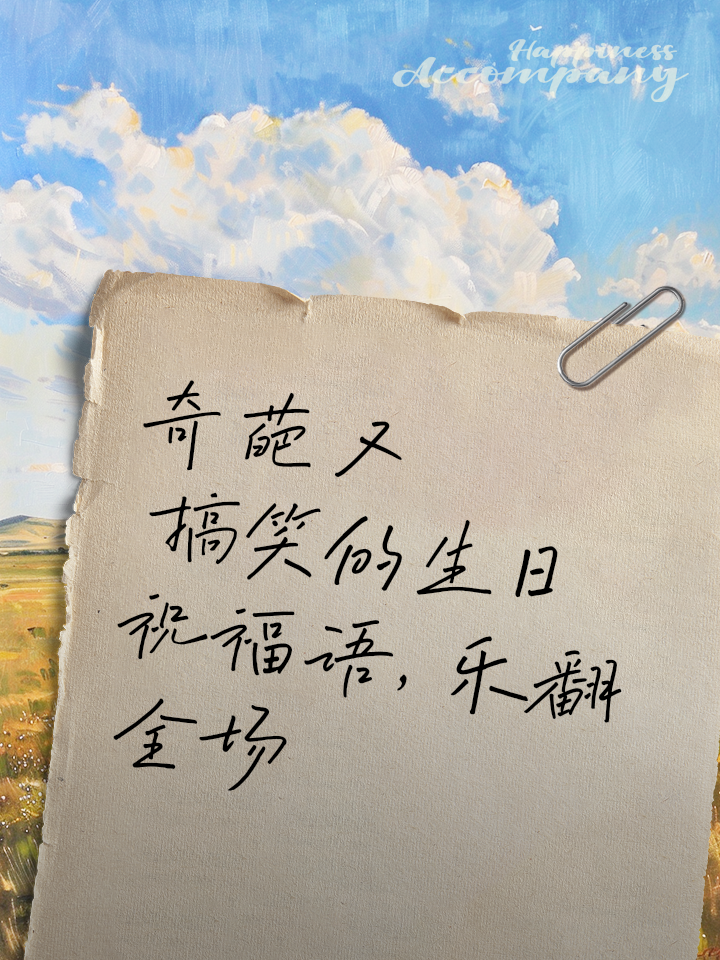 Happiness
Accompany
奇葩又
搞笑的生日
祝福语,乐翻
全场